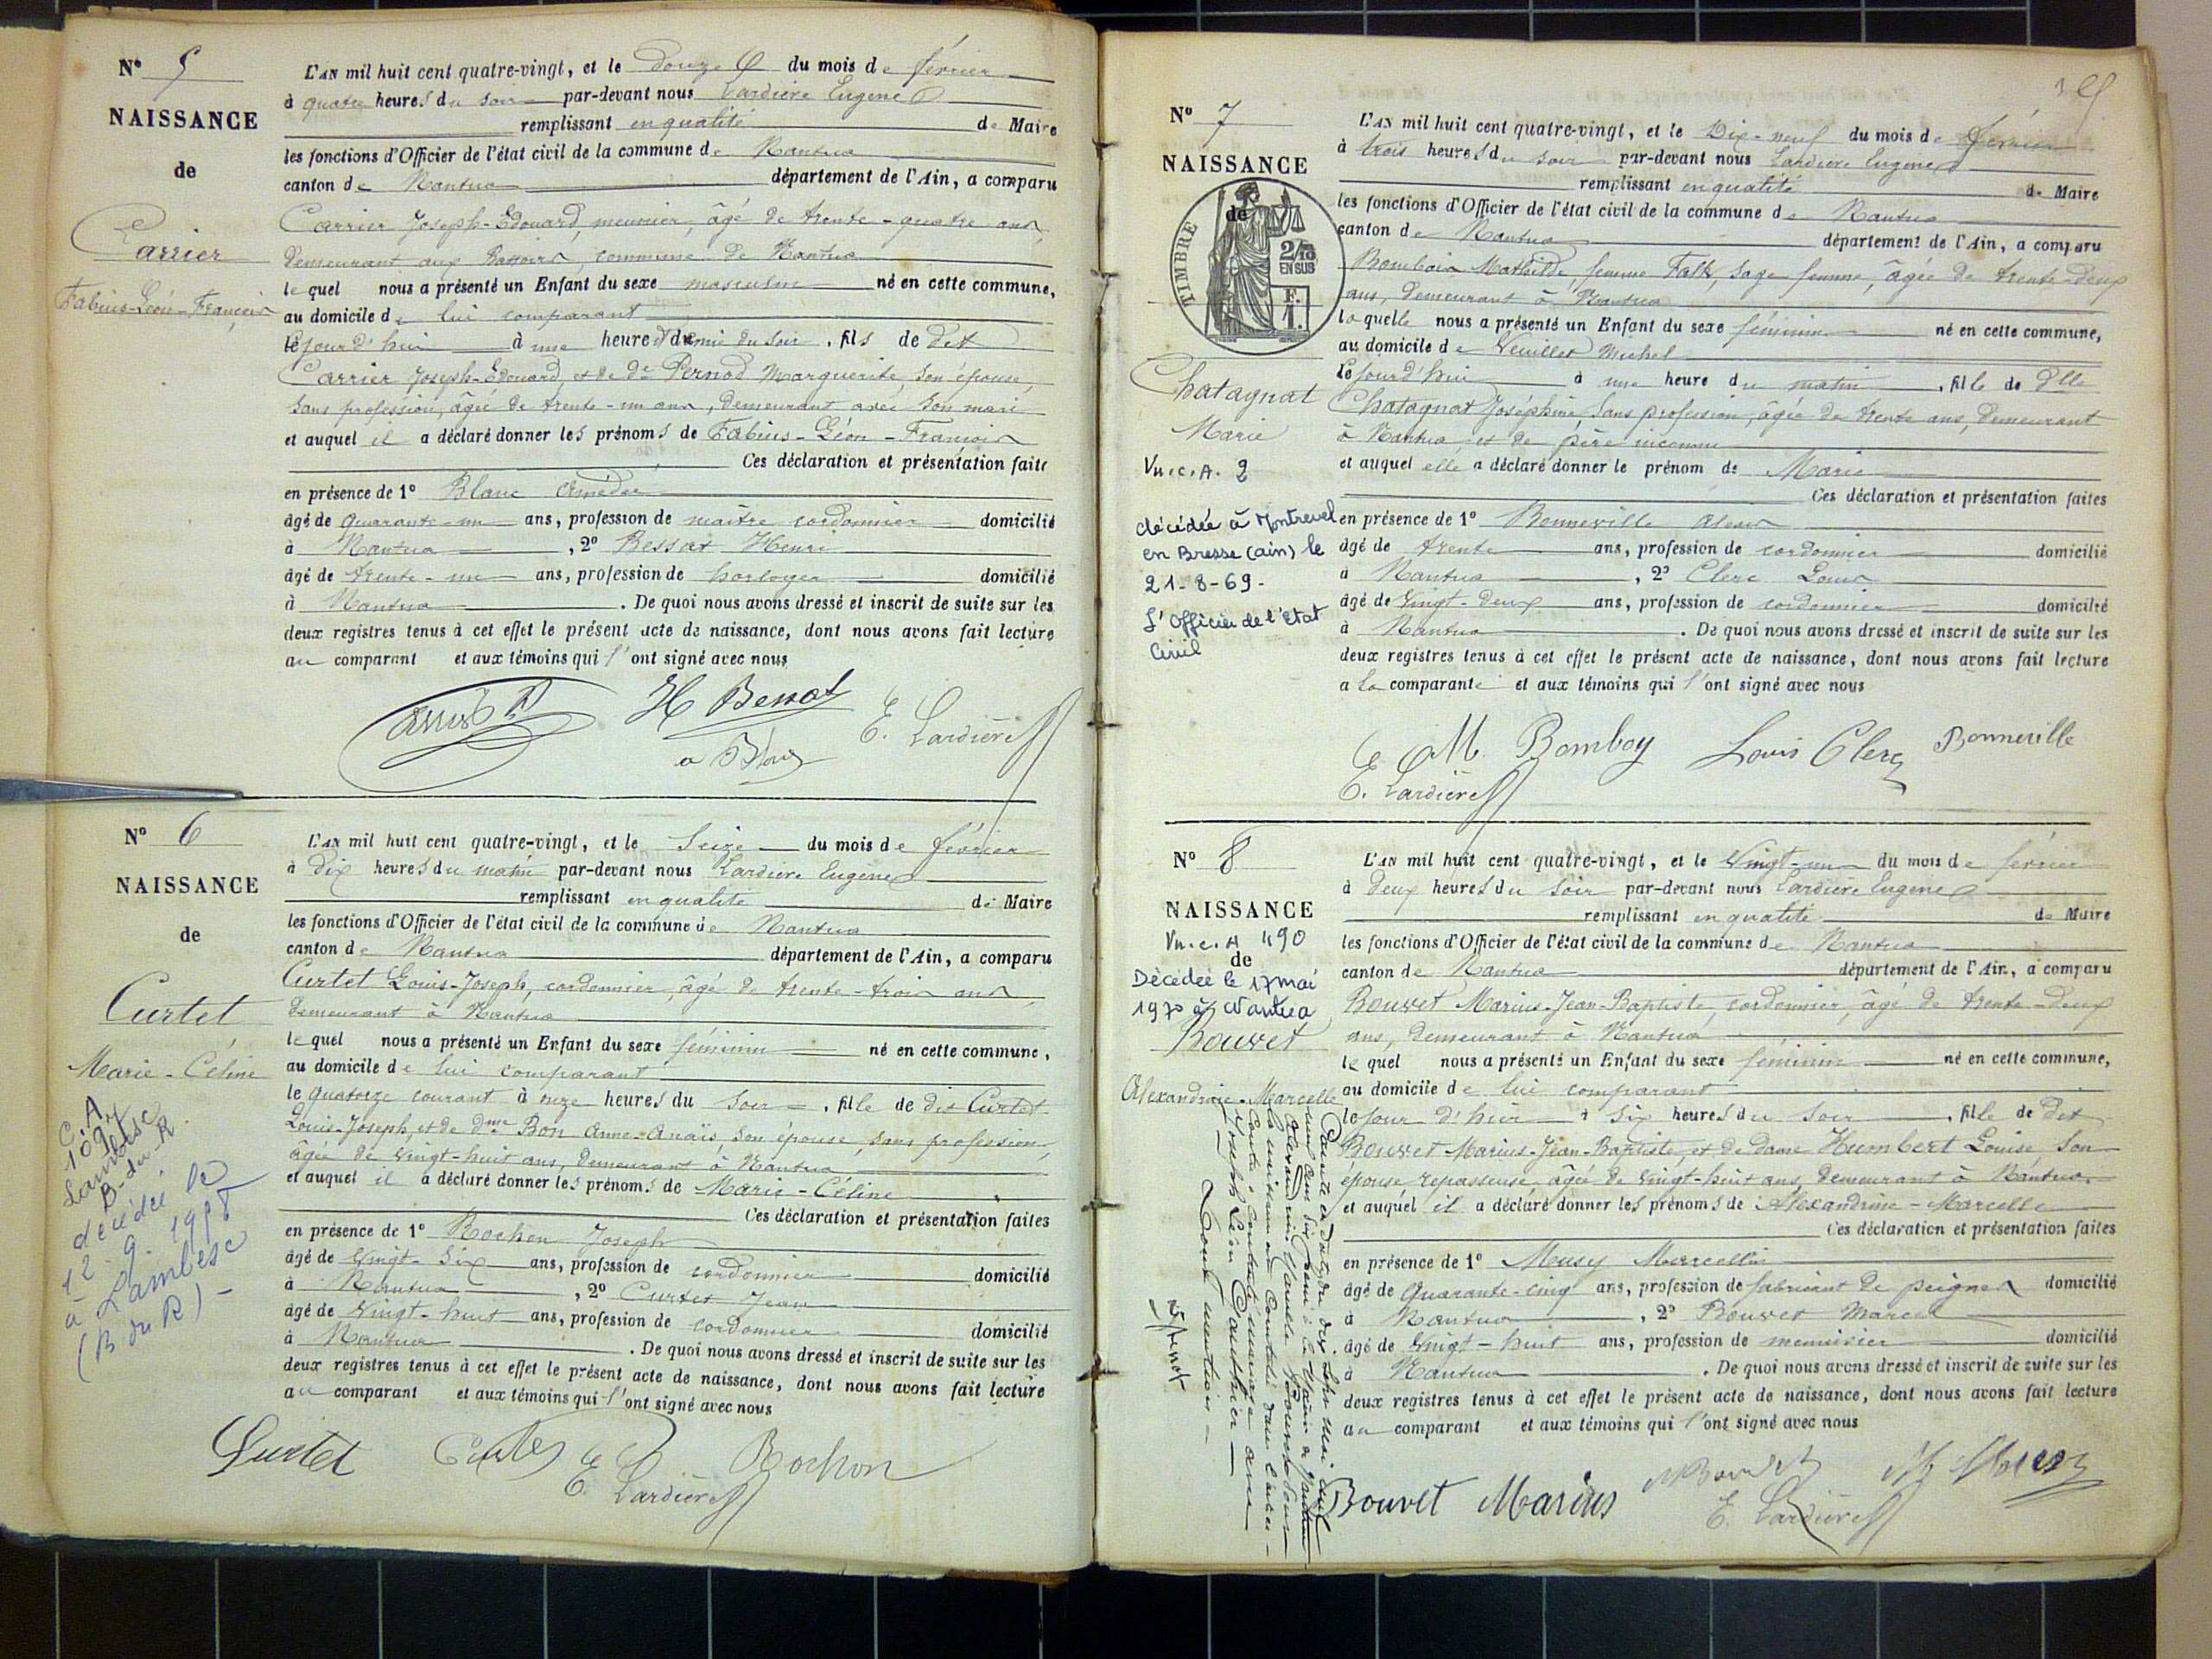 N° 5
NAISSANCE
de
Carrier
Fabius-Léon-François
L'AN mil huit cent quatre-vingt, et le Douze du mois de février
à quatre heures du soir par-devant nous Lardière Eugène
remplissant en qualité de Maire
les fonctions d'Officier de l'état civil de la commune de Nantua
canton de Nantua département de l'Ain, a comparu
Carrier Joseph-Edouard, meunier, âgé de trente-quatre ans,
demeurant aux Battoirs, commune de Nantua
lequel nous a présenté un Enfant du sexe masculin né en cette commune,
au domicile de lui comparant
le jour d'hui à une heure et demie du soir, fils de dit
Carrier Joseph-Edouard, et de De Pernod Marguerite, son épouse,
sans profession, âgée de trente-un ans, demeurant avec son mari
et auquel il a déclaré donner les prénoms de Fabius-Léon-François
Ces déclaration et présentation faites
en présence de 1° Blanc Amédée
âgé de quarante-un ans, profession de maître cordonnier domicilié
à Nantua, 2° Bessat Henri
âgé de trente-un ans, profession de horloger domicilié
à Nantua. De quoi nous avons dressé et inscrit de suite sur les
deux registres tenus à cet effet le présent acte de naissance, dont nous avons fait lecture
au comparant et aux témoins qui l'ont signé avec nous
H Bessat
E. Lardière
N° 6
NAISSANCE
de
Curtet
Marie-Céline
C.A
Lambesc
B-du-R.
décédée le
12. 9. 1958
à Lambesc
(B du R) -
L'AN mil huit cent quatre-vingt, et le Seize du mois de février
à Dix heures du matin par-devant nous Lardière Eugène
remplissant en qualité de Maire
les fonctions d'Officier de l'état civil de la commune de Nantua
canton de Nantua département de l'Ain, a comparu
Curtet Louis-Joseph, cordonnier, âgé de trente-trois ans,
demeurant à Nantua
lequel nous a présenté un Enfant du sexe féminin né en cette commune,
au domicile de lui comparant
le quatorze courant à onze heures du soir, fille de dit Curtet
Louis-Joseph, et de dme Bon Anne-Anaïs, son épouse, sans profession,
âgée de vingt-huit ans, demeurant à Nantua
et auquel il a déclaré donner les prénoms de Marie-Céline
Ces déclaration et présentation faites
en présence de 1° Rochon Joseph
âgé de vingt-six ans, profession de cordonnier domicilié
à Nantua, 2° Curtet Jean
âgé de vingt-huit ans, profession de cordonnier domicilié
à Nantua. De quoi nous avons dressé et inscrit de suite sur les
deux registres tenus à cet effet le présent acte de naissance, dont nous avons fait lecture
au comparant et aux témoins qui l'ont signé avec nous
Curtet Curtet Rochon
E. Lardière
N° 7
NAISSANCE
de
TIMBRE
2/10
EN SUS
F.
1.
Chatagnat
Marie
Vu.c.A. 2
décédée à Montrevel
en Bresse (ain) le
21-8-69-
L'Officier de l'Etat
Civil
L'AN mil huit cent quatre-vingt, et le Dix-neuf du mois de février
à trois heures du soir par-devant nous Lardière Eugène
remplissant en qualité de Maire
les fonctions d'Officier de l'état civil de la commune de Nantua
canton de Nantua département de l'Ain, a comparu
Mathilde, femme Falk, sage femme, âgée de trente-deux
ans, demeurant à Nantua
laquelle nous a présenté un Enfant du sexe féminin né en cette commune,
au domicile de Veuillet Michel
le jour d'hui à une heure du matin, fille de Dlle
Chatagnat Joséphine, sans profession, âgée de trente ans, demeurant
à Nantua et de père inconnu
et auquel elle a déclaré donner le prénom de Marie
Ces déclaration et présentation faites
en présence de 1° Bonneville Alexis
âgé de trente ans, profession de cordonnier domicilié
à Nantua, 2° Clerc Louis
âgé de vingt-deux ans, profession de cordonnier domicilié
à Nantua. De quoi nous avons dressé et inscrit de suite sur les
deux registres tenus à cet effet le présent acte de naissance, dont nous avons fait lecture
a la comparante et aux témoins qui l'ont signé avec nous
M. Bomboy Louis Clerc Bonneville
E. Lardière
N° 8
NAISSANCE
Vu.c.A 490
de
Décédée le 17 mai
1970 à Nantua
Bouvet
Alexandrine-Marcelle
L'AN mil huit cent quatre-vingt, et le Vingt-un du mois de février
à deux heures du soir par-devant nous Lardière Eugène
remplissant en qualité de Maire
les fonctions d'Officier de l'état civil de la commune de Nantua
canton de Nantua département de l'Ain, a comparu
Bouvet Marius-Jean-Baptiste, cordonnier, âgé de trente-deux
ans, demeurant à Nantua
lequel nous a présenté un Enfant du sexe féminin né en cette commune,
au domicile de lui comparant
le jour d'hier à six heures du soir, fille de dit
Bouvet Marius-Jean-Baptiste, et de Dame Humbert Louise, son
épouse, repasseuse, âgée de vingt-huit ans, demeurant à Nantua.
et auquel il a déclaré donner les prénoms de Alexandrine-Marcelle
Ces déclaration et présentation faites
en présence de 1° Musy Marcellin
âgé de quarante-cinq ans, profession de fabricant de peignes domicilié
à Nantua, 2° Bouvet Marcel
âgé de vingt-huit ans, profession de menuisier domicilié
à Nantua. De quoi nous avons dressé et inscrit de suite sur les
deux registres tenus à cet effet le présent acte de naissance, dont nous avons fait lecture
au comparant et aux témoins qui l'ont signé avec nous
Bouvet Marius
E. Lardière